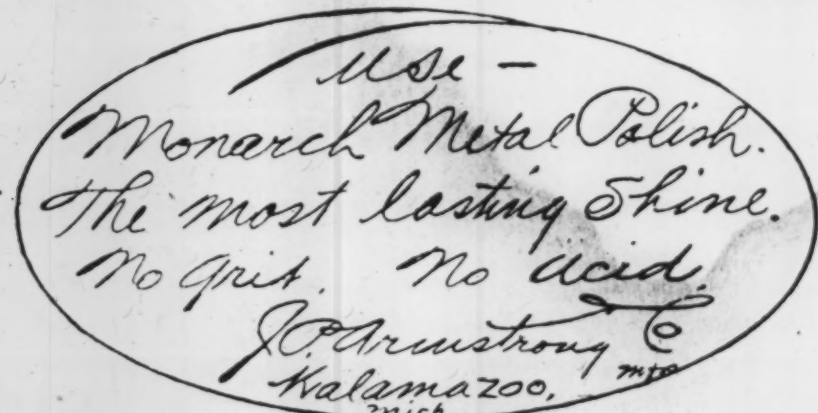 Use -
Monarch Metal Polish.
The most lasting Shine.
No Grit. No acid.
J.P. Armstrong Co
Kalamazoo, mfr
Mich